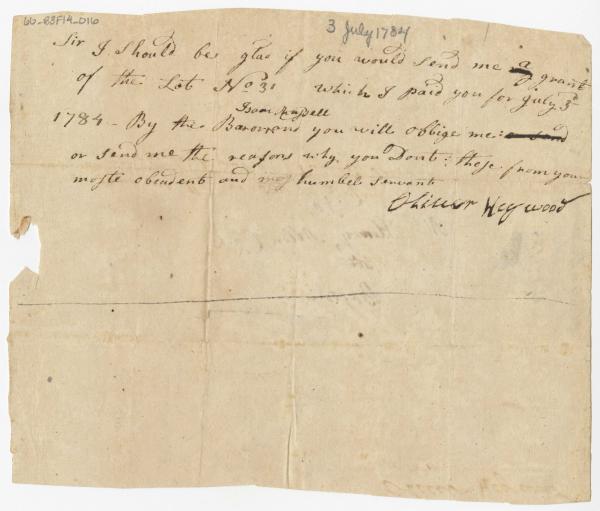 66-83F14-016
3 July 1784
Sir I should be glad if you would send me a grant
of the Lot No 31 which I paid you for July 3d
1784 - By the Bearer
you will obbige me
or send me the reasons why you Dont : these from your
moste obedent and humbel servant
Oliver Heywood